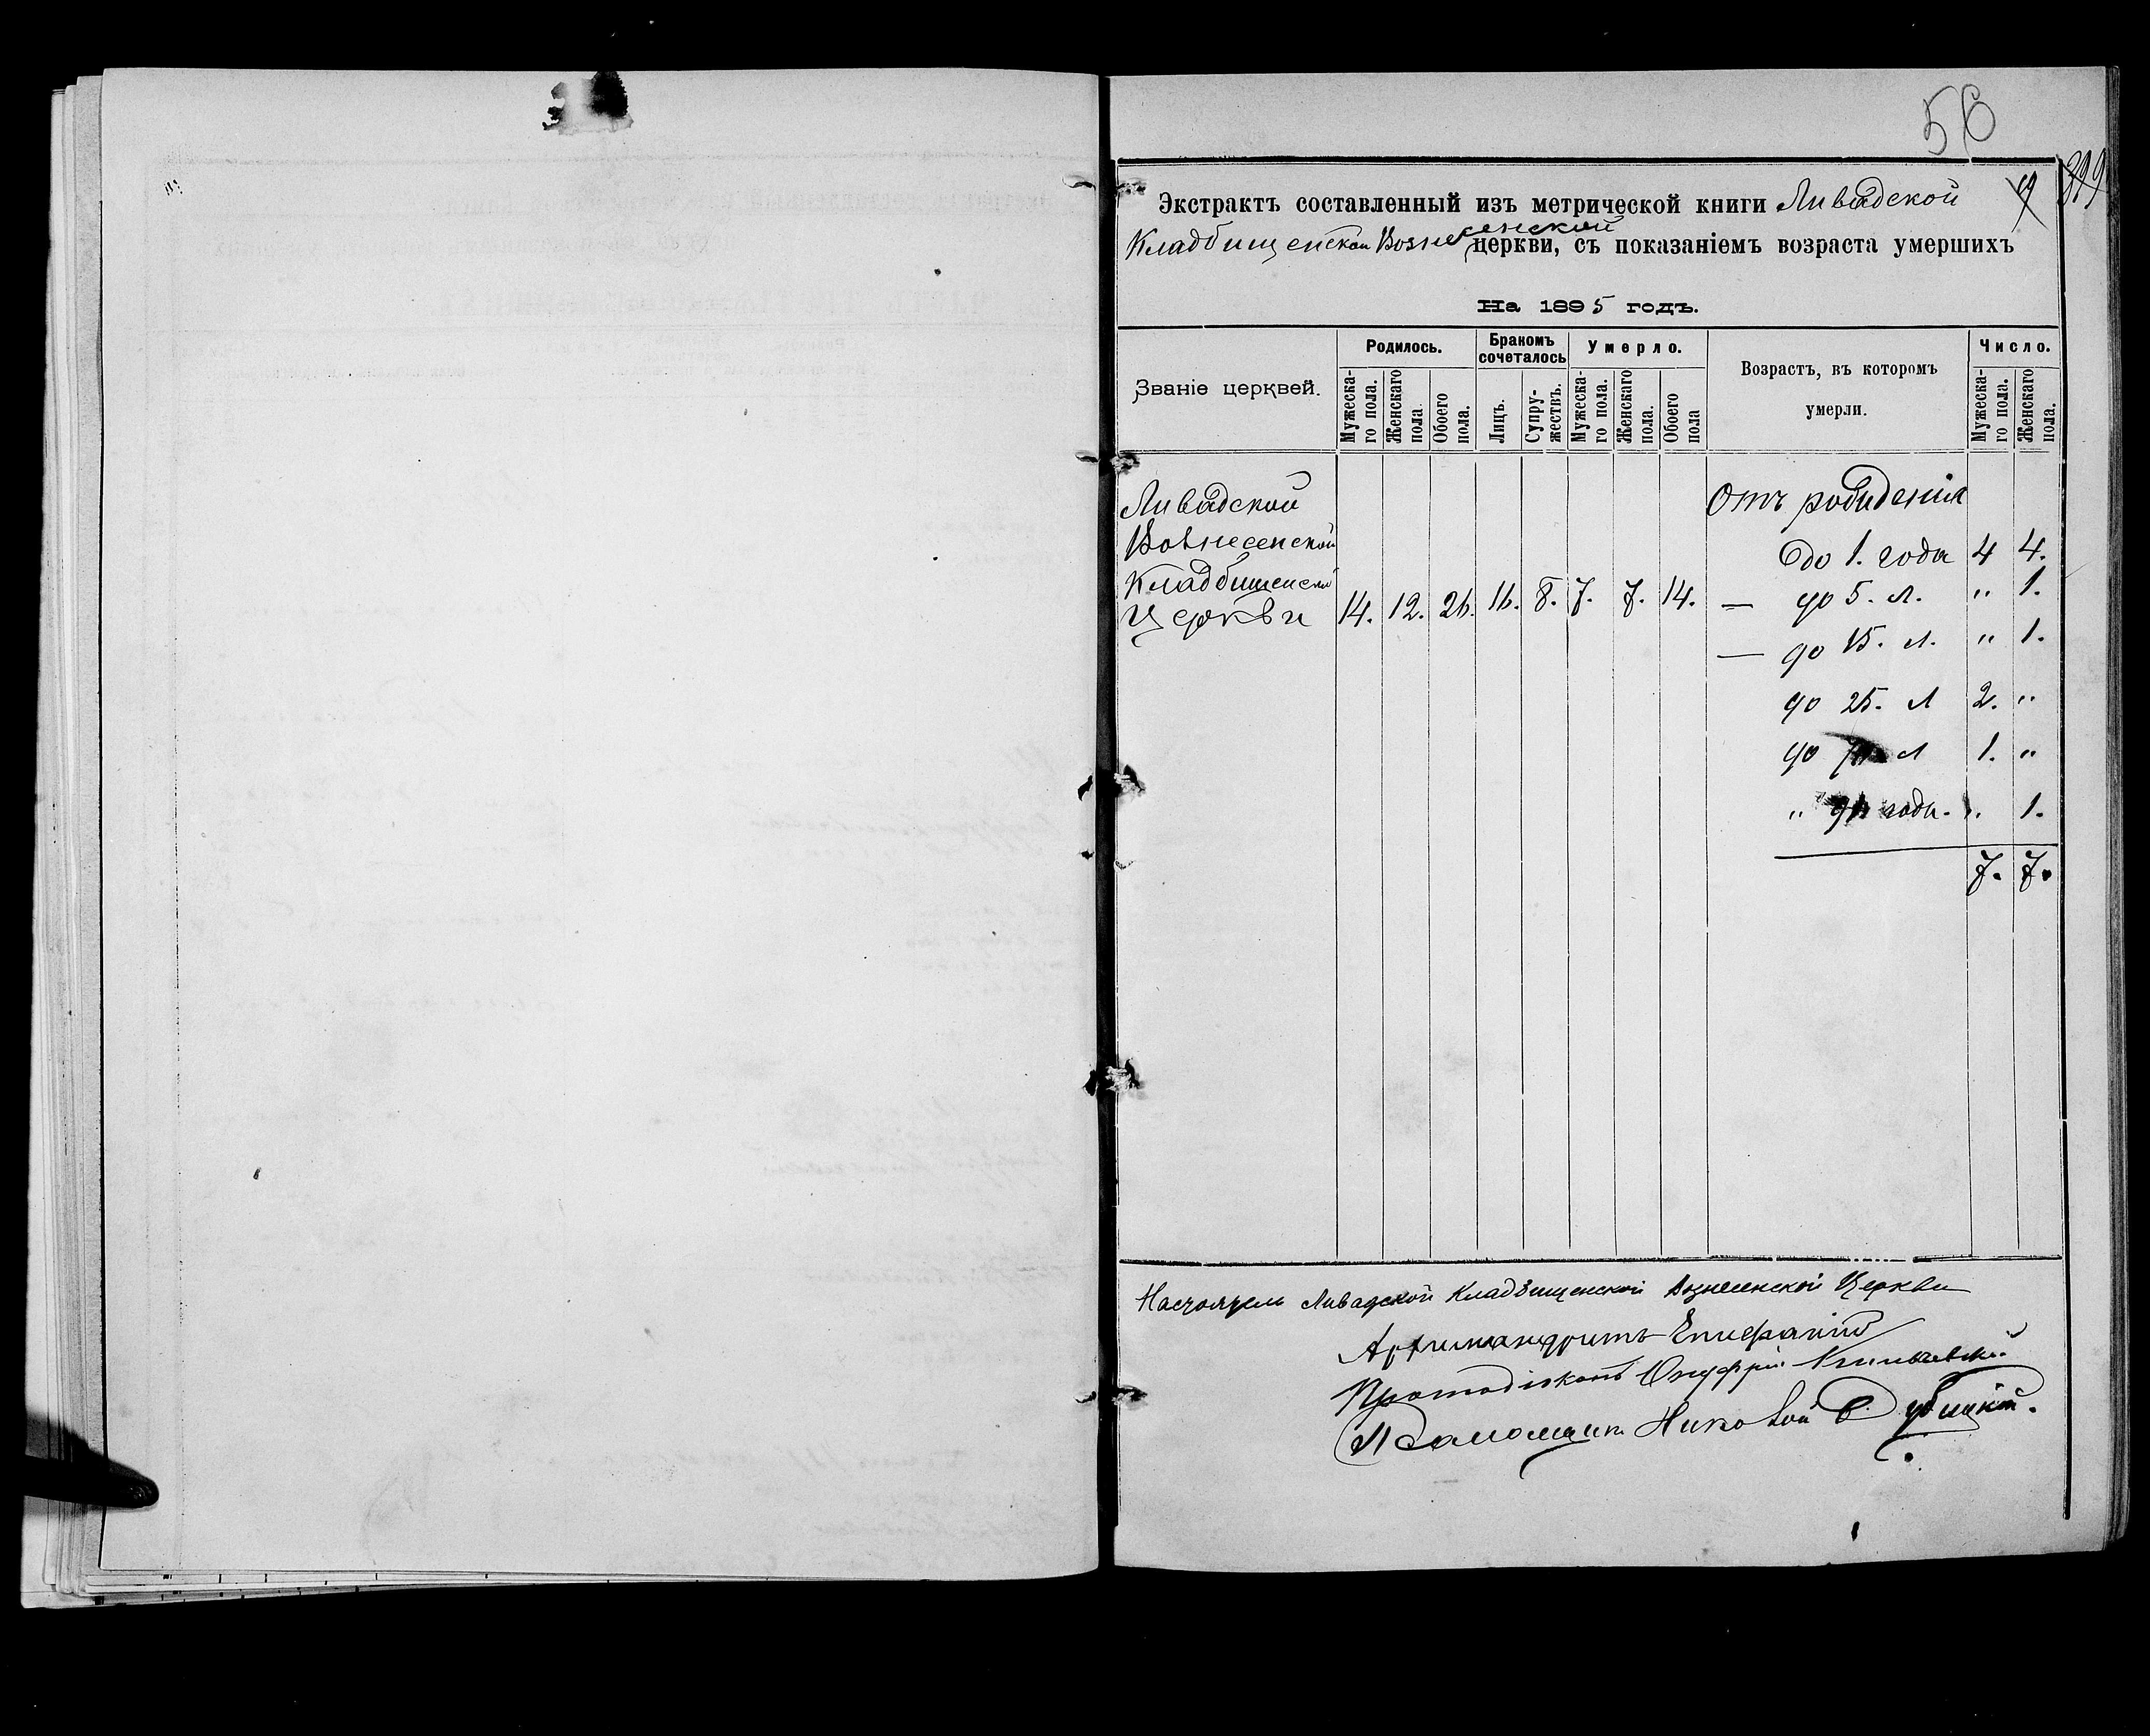 56
Экстрактъ составленный изъ метрической книги Ливадской
Кладбищенской Вознесенской церкви, съ показаніемъ возраста умершихъ
На 1895 годъ.
Званіе церквей.
Родилось.
Бракомъ сочеталось
Умерло.
Возрастъ, въ которомъ умерли.
Число.
Мужеска-го пола.
Женскаго пола.
Обоего пола.
Лицъ.
Супру-жествъ.
Мужеска-го пола.
Женскаго пола.
Обоего пола
Мужеска-го пола.
Женскаго пола.
Ливадской
Вознесенской
Кладбищенской
Церкви 14. 12. 26. 16. 8. 7. 7. 14.
Отъ рождения
до 1. года 4 4.
— до 5. л. " 1.
— до 15. л. " 1.
до 25. л 2. "
до л 1. "
" года. " 1.
7. 7.
Настоятель Ливадской Кладбищенской Вознесенской Церкви
Архимандритъ Епифаній
Протодіаконъ Онуфрій
Псаломщикъ Николай Дубицкій.